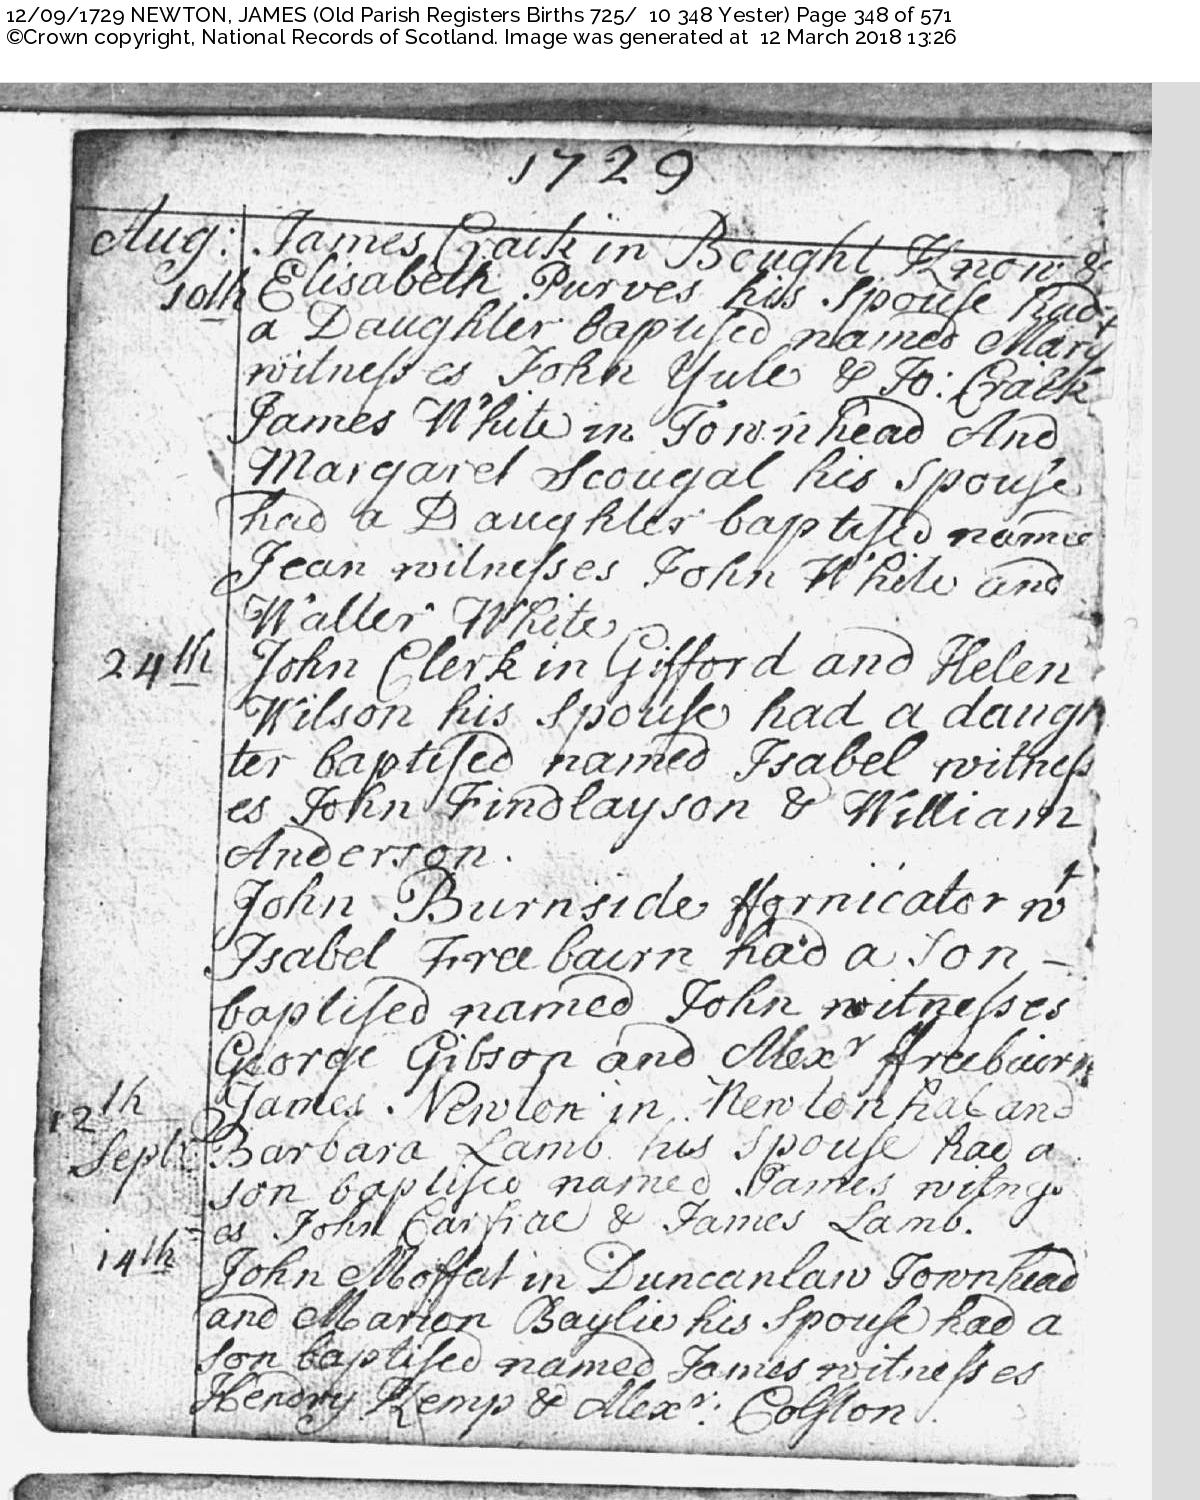 12/09/1729 NEWTON, JAMES (Old Parish Registers Births 725/ 10 348 Yester) Page 348 of 571
©Crown copyright, National Records of Scotland. Image was generated at 12 March 2018 13:26
1729
Aug: James Craik in Bought Know &
10th Elisabeth Purves his Spouse had
a Daughter baptised named Mary
witnesses John Yule & Jo: Craik
James White in Townhead And
Margaret Scougal his Spouse
had a Daughter baptised name
Jean witnesses John White and
Walter White
24th John Clerk in Gifford and Helen
Wilson his Spouse had a daugh
ter baptised named Isabel witness
es John Findlayson & William
Anderson.
John Burnside ffornicator wt
Isabel Freebairn had a Son –
baptised named John witnesses
George Gibson and Alexr ffreebairn
12th James Newton in Newtonhal and
Septr Barbara Lamb his Spouse had a
son baptised named James witness
es John Carfrae & James Lamb.
14th John Moffat in Duncanlaw Townhead
and Marion Baylie his Spouse had a
son baptised named James witnesses
Hendry Kemp & Alexr: Colston.